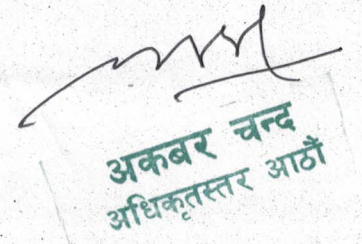 अकबर चन्द
अधिकृतस्तर आठौं